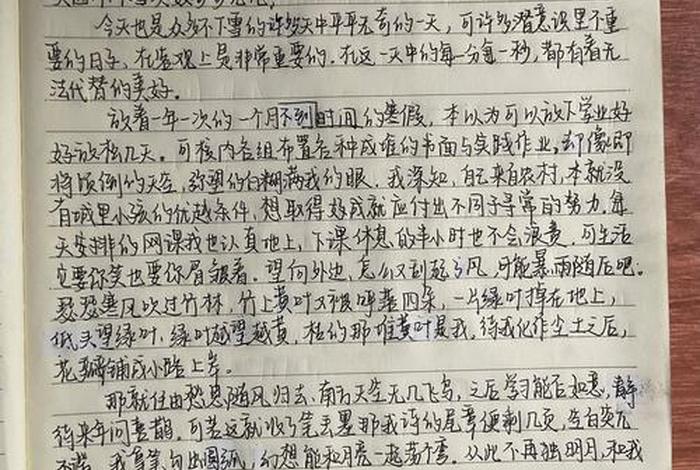 今天也是众多不下雪的许多天中平平无奇的一天，可许多潜意识里不重
要的日子，在客观上是非常重要的。在这一天中的每一分每一秒，都有着无
法代替的美好。
放着一年一次的一个月不到时间的寒假，本以为可以放下学业好
好放松几天。可校内各组布置各种成堆的书面与实践作业，却像即
将倾倒的天空，弥望的白糊满我的眼。我深知，自己来自农村，本就没
有城里小孩的优越条件，想取得好成就应付出不同于寻常的努力。每
天安排的网课我也认真地上，下课休息的半小时也不会浪费。可生活
定要你笑也要你眉皱着。望向外边，怎么又刮起了风，可能暴雨随后吧。
瑟瑟寒风吹过竹林，竹上黄叶又被呼落四条，一片绿叶掉在地上，
低头望绿叶，绿叶越望越黄，枯的那堆黄叶是我，待我化作尘土之后，
花瓣铺成小路上岸。
那就任由愁思随风归去，南方天空无几飞鸟，之后学习能否如意，静
待来年问喜鹊。可若这就收了笔丢墨那我诗的尾章便剩几页，告白
我拿笔勾出圆弧，幻想能和月亮一起荡弯。从此不再独明月，和我